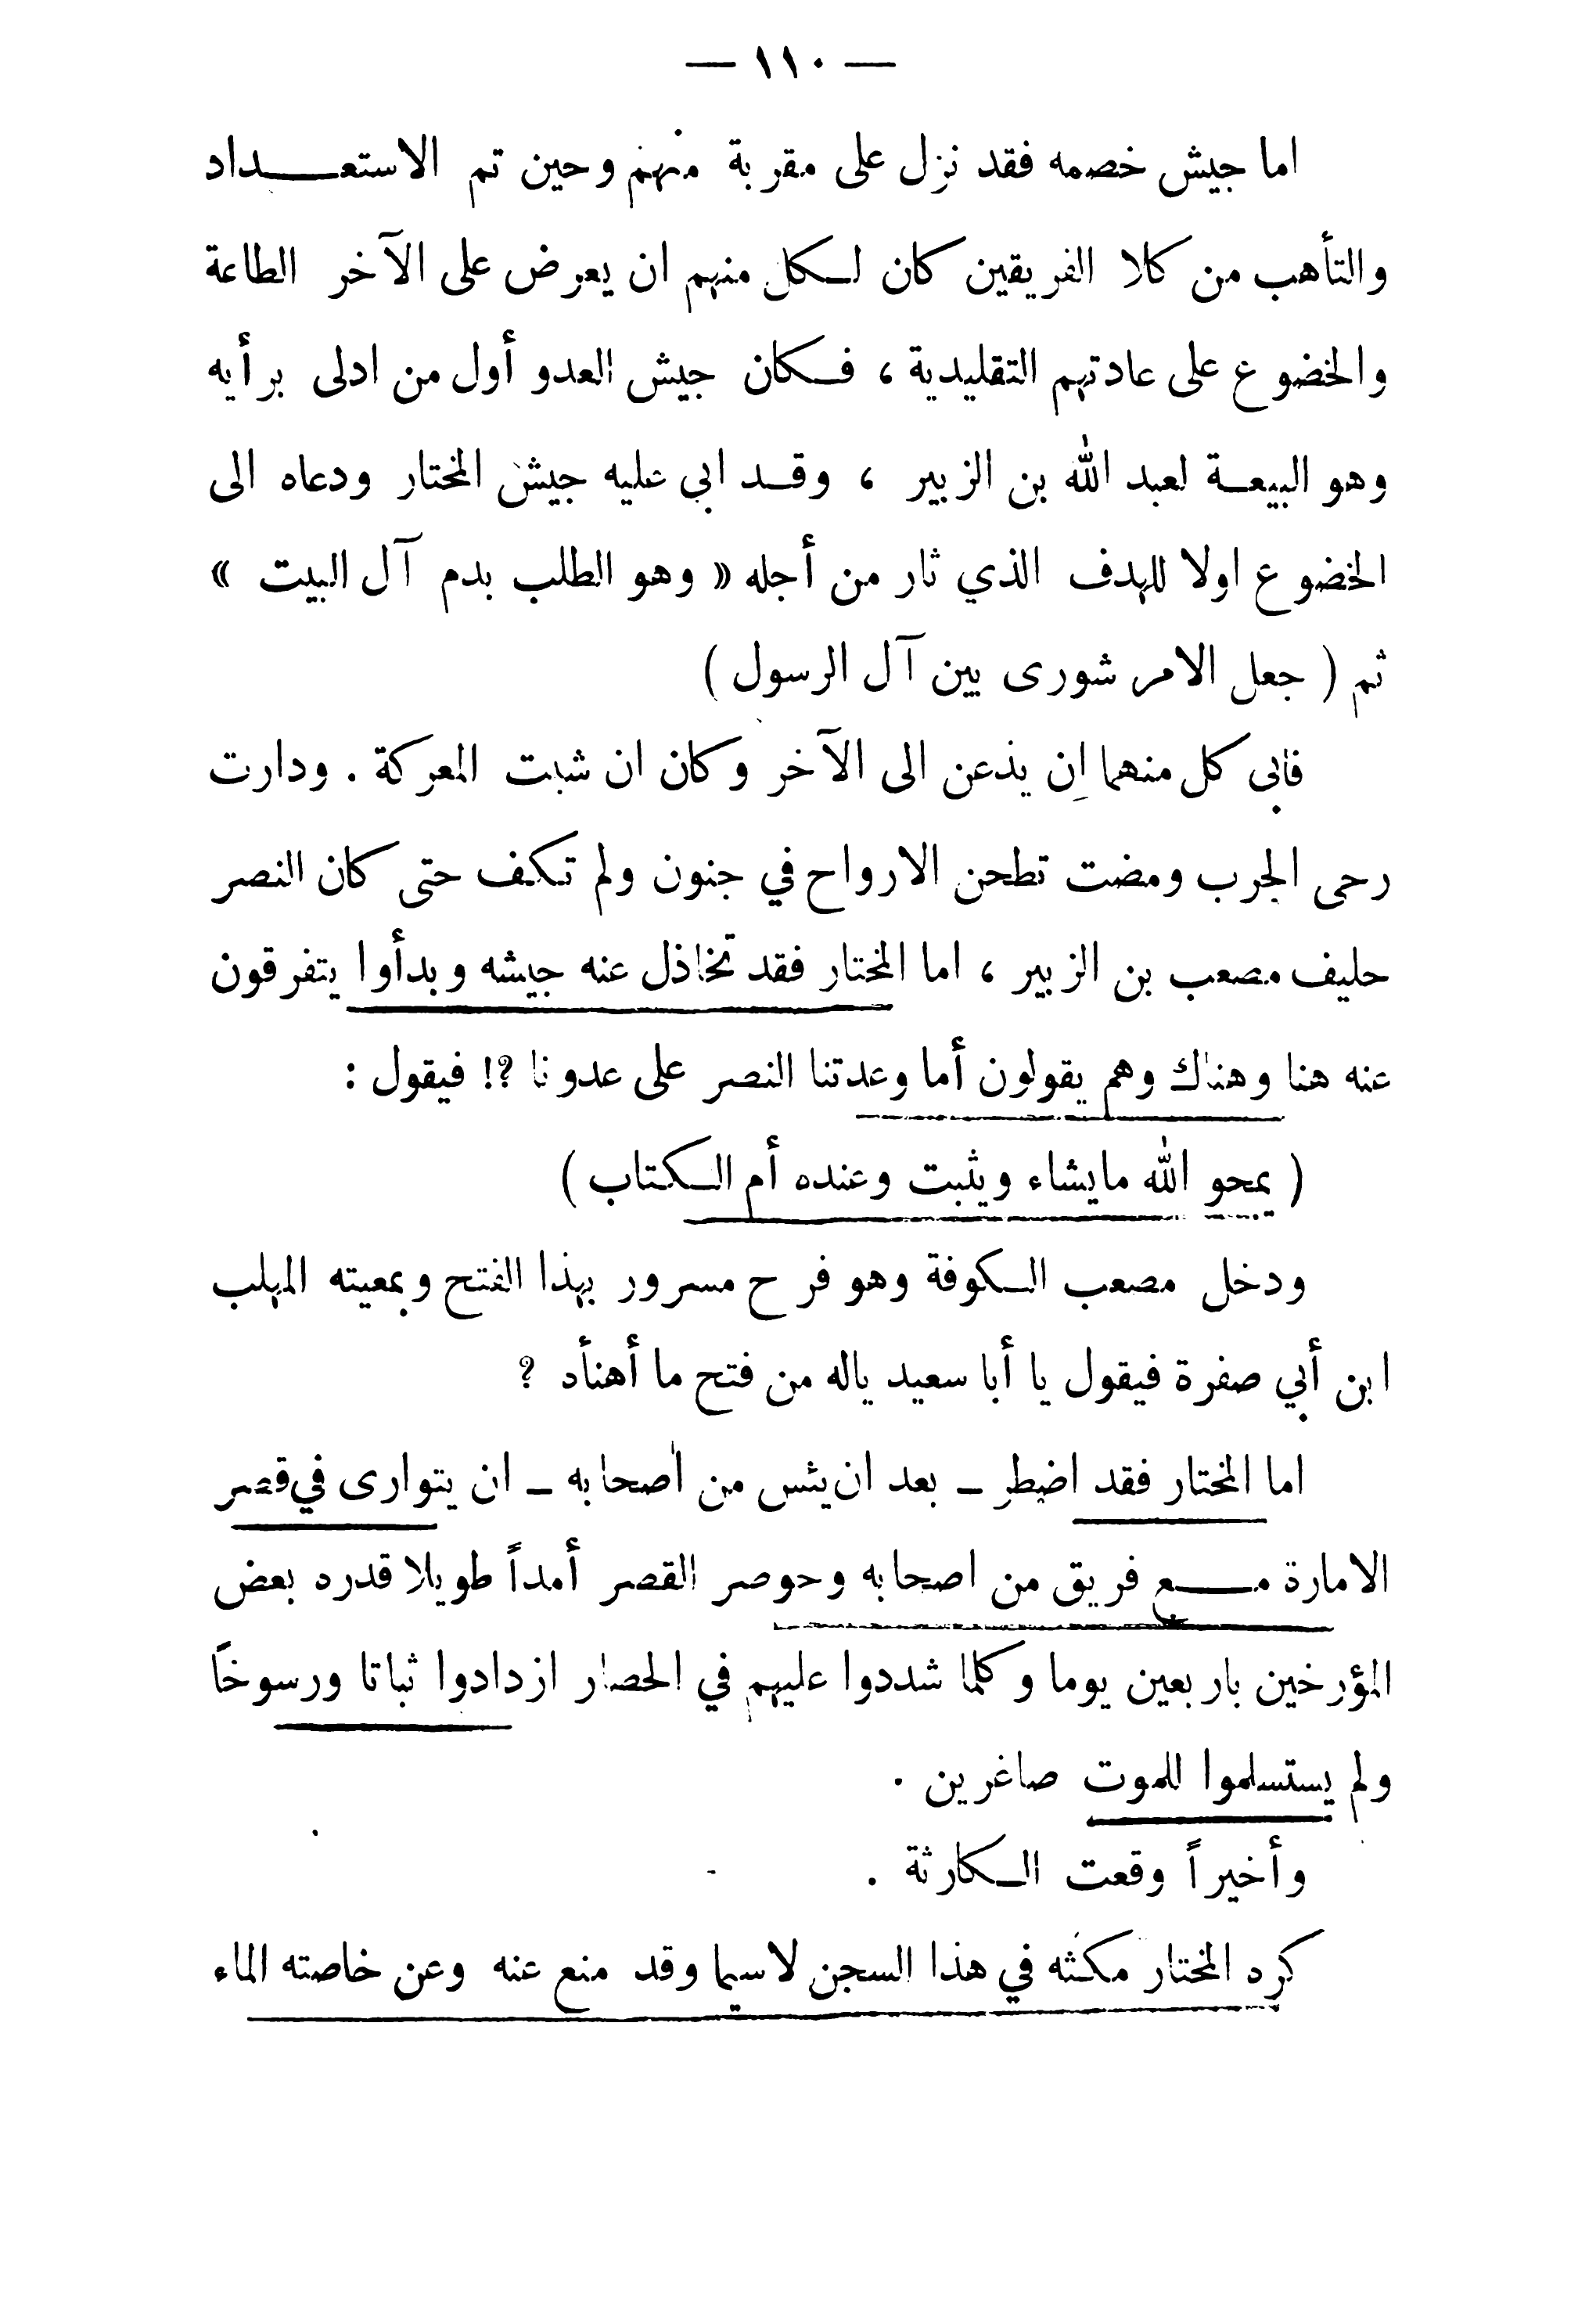 — ١١٠ —
اما جيش خصمه فقد نزل على مقربة منهم وحين تم الاستعداد
والتأهب من كلا الفريقين كان لكل منهم ان يعرض على الآخر الطاعة
والخضوع على عادتهم التقليدية ، فكان جيش العدو أول من ادلى برأيه
وهو البيعة لعبد الله بن الزبير ، وقد ابى عليه جيش المختار ودعاه الى
الخضوع اولا للهدف الذي ثار من أجله « وهو الطلب بدم آل البيت »
ثم ( جعل الامر شورى بين آل الرسول )
فابى كل منهما ان يذعن الى الآخر وكان ان شبت المعركة . ودارت
رحى الحرب ومضت تطحن الارواح في جنون ولم تكف حتى كان النصر
حليف مصعب بن الزبير ، اما المختار فقد تخاذل عنه جيشه وبدأوا يتفرقون
عنه هنا وهناك وهم يقولون أما وعدتنا النصر على عدونا ?! فيقول :
( يمحو الله مايشاء ويثبت وعنده أم الكتاب )
ودخل مصعب الكوفة وهو فرح مسرور بهذا الفتح وبمعيته المهلب
ابن أبي صفرة فيقول يا أبا سعيد ياله من فتح ما أهنأه ?
اما المختار فقد اضطر ـ بعد ان يئس من أصحابه ـ ان يتوارى في قصر
الامارة مع فريق من اصحابه وحوصر القصر أمداً طويلا قدره بعض
المؤرخين باربعين يوما وكلما شددوا عليهم في الحصار ازدادوا ثباتا ورسوخاً
ولم يستسلموا للموت صاغرين .
وأخيراً وقعت الكارثة .
كره المختار مكثه في هذا السجن لاسيما وقد منع عنه وعن خاصته الماء